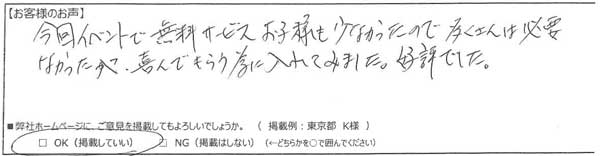 【お客様のお声】
今回イベントで無料サービスお子様も少なかったので多くさんは必要
なかったが、喜んでもらう為に入れてみました。好評でした。
■弊社ホームページに、ご意見を掲載してもよろしいでしょうか。（ 掲載例：東京都 K様 ）
□ OK（掲載していい） □ NG（掲載はしない）（←どちらかを○で囲んでください）